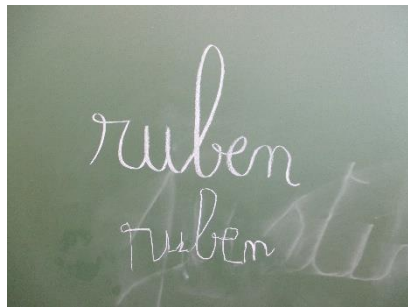 ruben
ruben